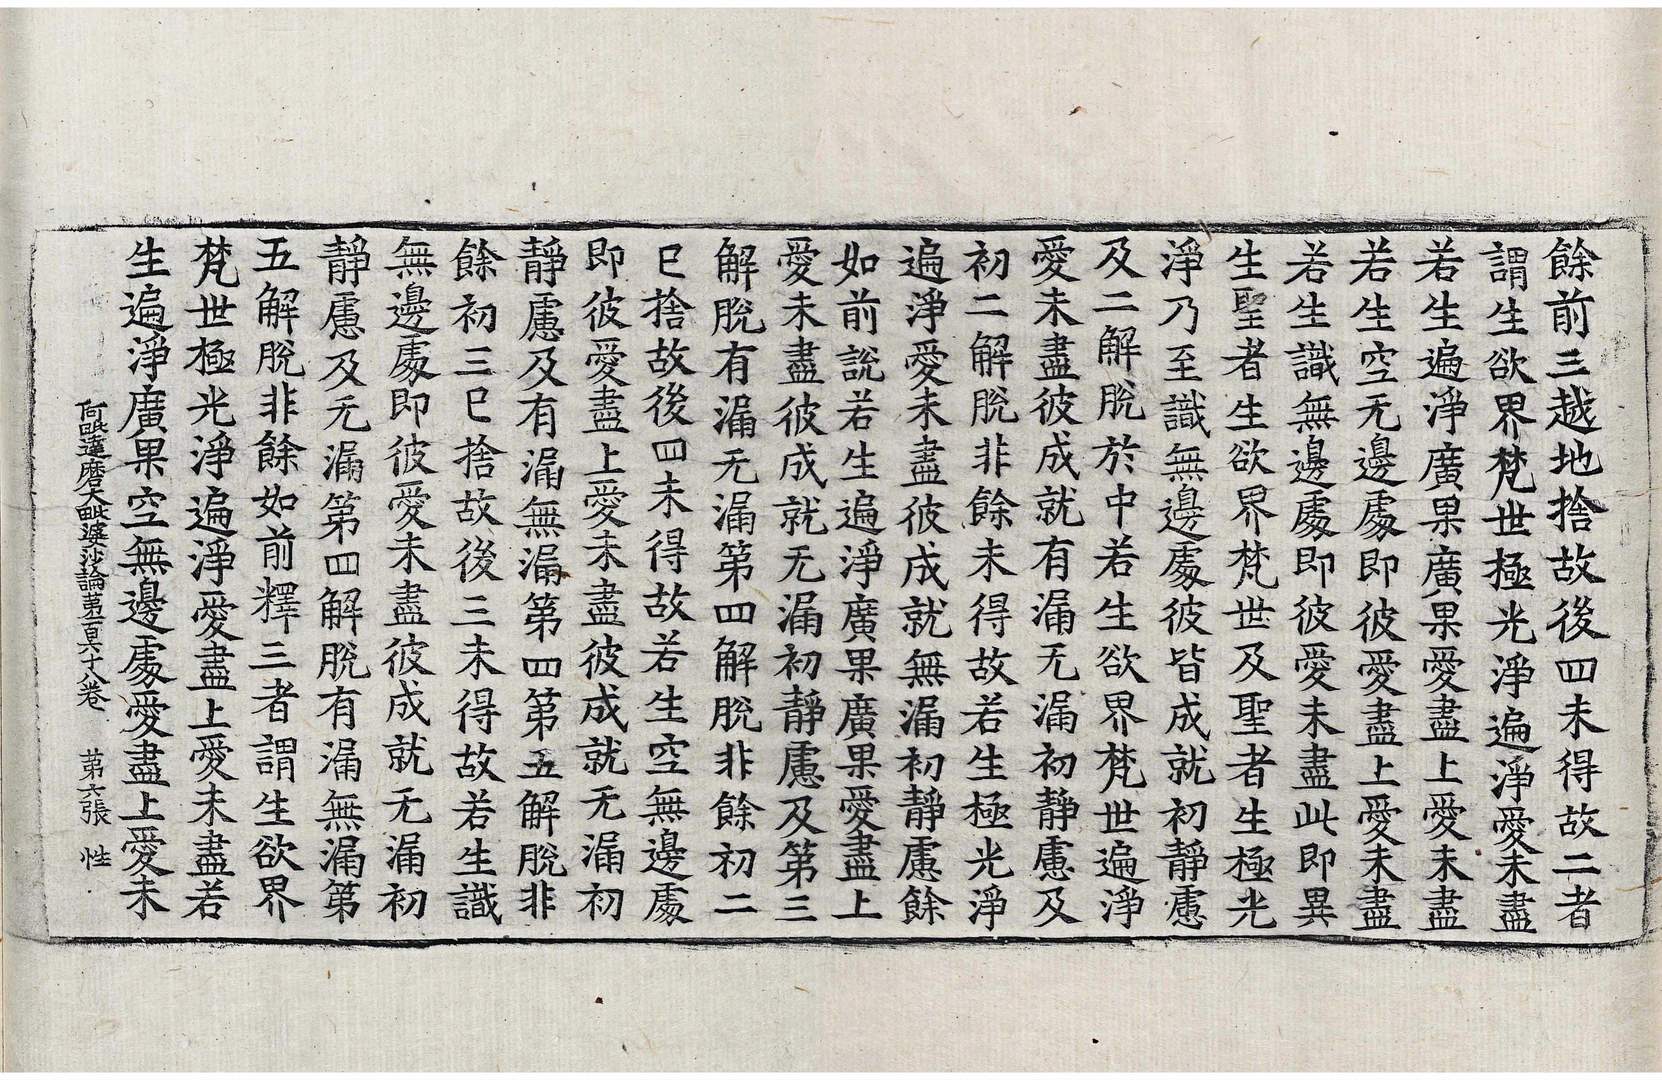 餘前三越地捨故後四未得故二者
謂生欲界梵世極光淨遍淨愛未盡
若生遍淨廣果廣果愛盡上愛未盡
若生空无邊處即彼愛盡上愛未盡
若生識無邊處即彼愛未盡此即異
生聖者生欲界梵世及聖者生極光
淨乃至識無邊處彼皆成就初靜慮
及二解脫於中若生欲界梵世遍淨
愛未盡彼成就有漏无漏初靜慮及
初二解脫非餘未得故若生極光淨
遍淨愛未盡彼成就無漏初靜慮餘
如前說若生遍淨廣果廣果愛盡上
愛未盡彼成就无漏初靜慮及第三
解脫有漏无漏第四解脫非餘初二
已捨故後四未得故若生空無邊處
即彼愛盡上愛未盡彼成就无漏初
靜慮及有漏無漏第四第五解脫非
餘初三已捨故後三未得故若生識
無邊處即彼愛未盡彼成就无漏初
靜慮及无漏第四解脫有漏無漏第
五解脫非餘如前釋三者謂生欲界
梵世極光淨遍淨愛盡上愛未盡若
生遍淨廣果空無邊處愛盡上愛未
阿毗達磨大毗婆沙論第一百六十八卷 第六張 性